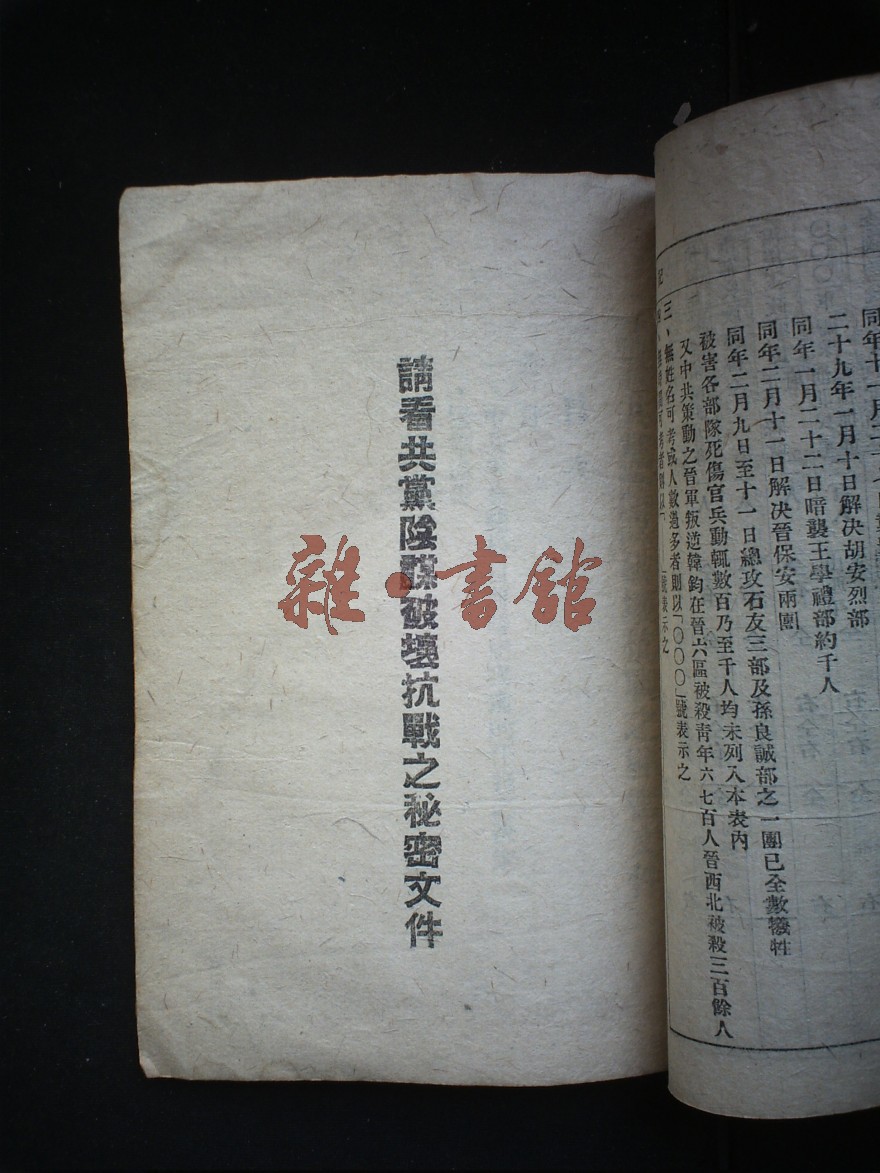 同年十一月二十
二十九年一月十日解决胡安烈部
同年一月二十二日暗襲王學禮部約千人
同年二月十一日解决晉保安兩團
同年二月九日至十一日總攻石友三部及孫良誠部之一團已全數犧牲
被害各部隊死傷官兵動輒數百乃至千人均未列入本表內
又中共策動之晉軍叛逆韓鈞在晉六區被殺靑年六七百人晉西北被殺三百餘人
三、無姓名可考或人數過多者則以「〇〇〇」號表示之
可考者則以「 」號表示之
記
請看共黨陰謀破壞抗戰之秘密文件
雜·書館